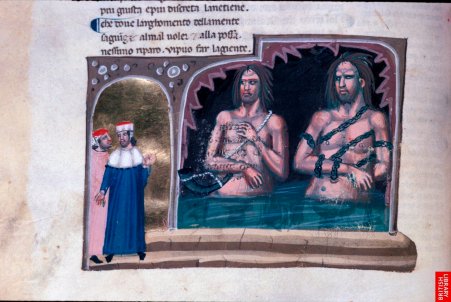 piu giusta epiu discreta lanetiene.
che doue larghomento dellamente
sagiugne almal uoler ⁊ alla possa.
nessuno riparo. vipuo far lagiente.
BRITISH
LIBRARY